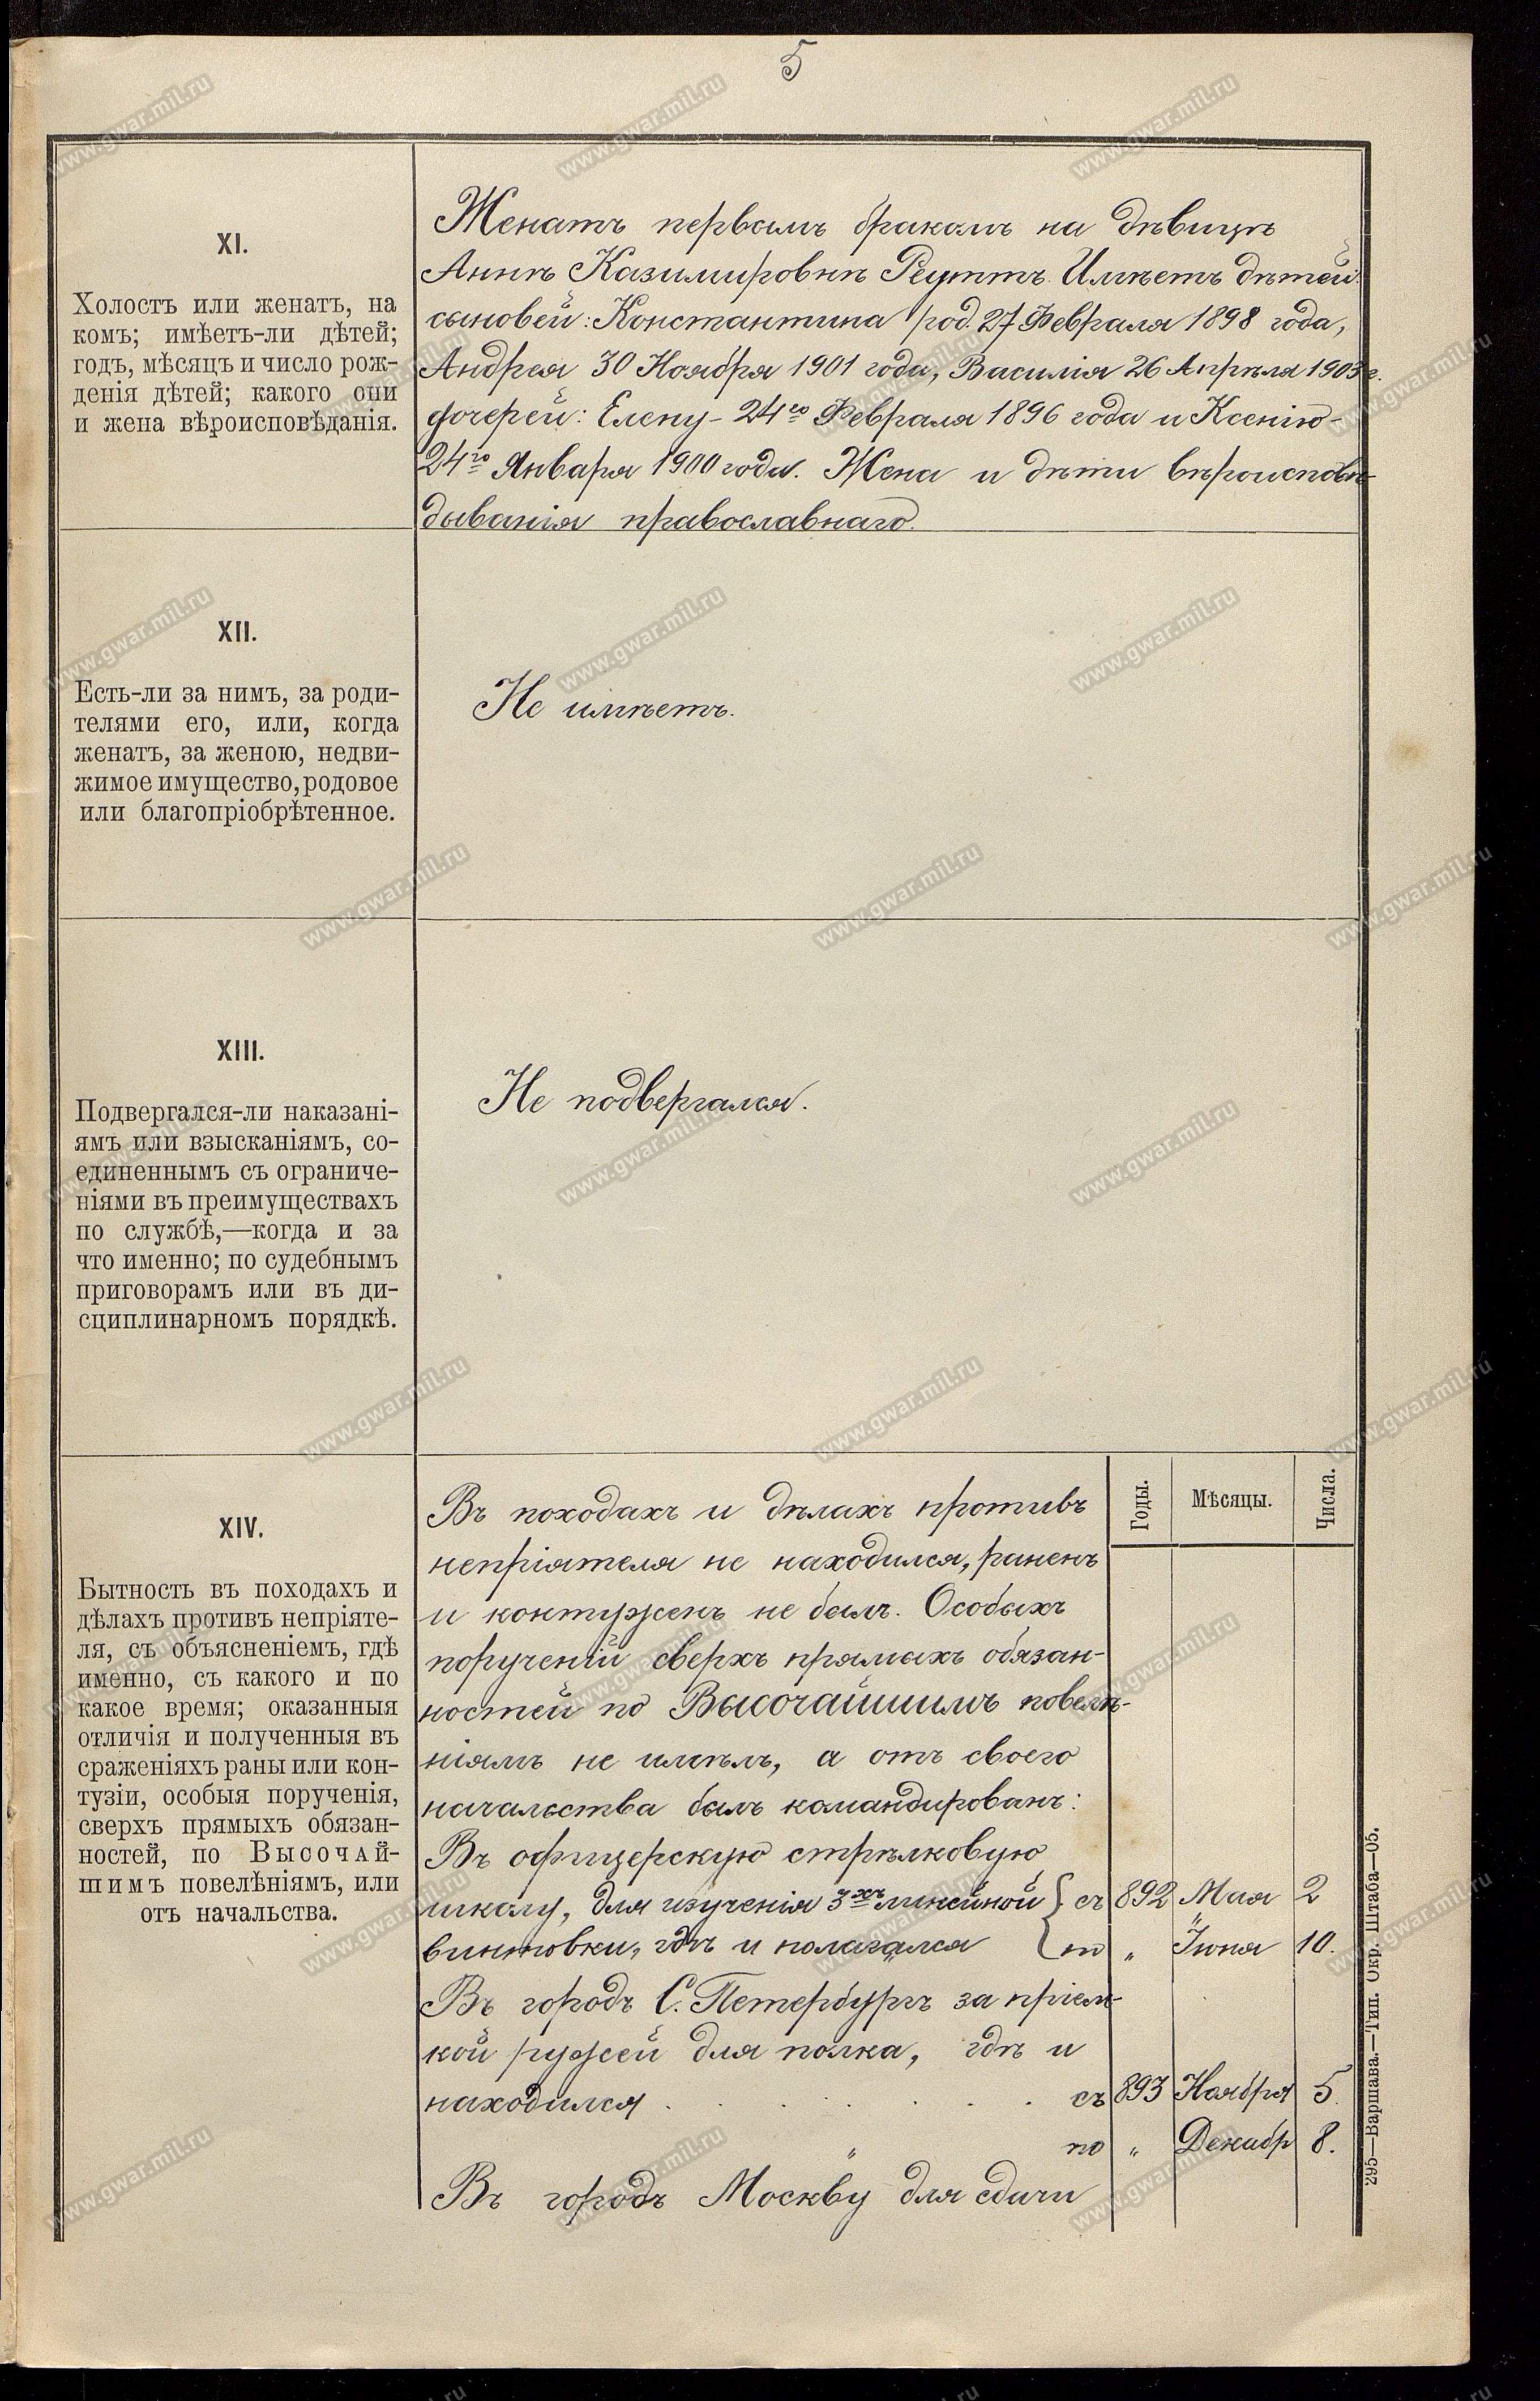 5
XI.
Холостъ или женатъ, на
комъ; имѣетъ-ли дѣтей;
годъ, мѣсяцъ и число рож-
денія дѣтей; какого они
и жена вѣроисповѣданія.
Женатъ первымъ бракомъ на дѣвицѣ
Аннѣ Казимировнѣ Реуттъ. Имѣетъ дѣтей:
сыновей: Константина род. 27 Февраля 1898 года,
Андрея 30 Ноября 1901 года, Василія 26 Апрѣля 1903 г.
дочерей: Елену - 24го Февраля 1896 года и Ксенію -
24го Января 1900 года. Жена и дѣти вѣроисповѣ-
дыванія православнаго.
XII.
Есть-ли за нимъ, за роди-
телями его, или, когда
женатъ, за женою, недви-
жимое имущество, родовое
или благопріобрѣтенное.
Не имѣетъ.
XIII.
Подвергался-ли наказані-
ямъ или взысканіямъ, со-
единеннымъ съ ограниче-
ніями въ преимуществахъ
по службѣ,—когда и за
что именно; по судебнымъ
приговорамъ или въ ди-
сциплинарномъ порядкѣ.
Не подвергался.
XIV.
Бытность въ походахъ и
дѣлахъ противъ непріяте-
ля, съ объясненіемъ, гдѣ
именно, съ какого и по
какое время; оказанныя
отличія и полученныя въ
сраженіяхъ раны или кон-
тузіи, особыя порученія,
сверхъ прямыхъ обязан-
ностей, по Высочай-
шимъ повелѣніямъ, или
отъ начальства.
Годы. Мѣсяцы. Числа.
Въ походахъ и дѣлахъ противъ
непріятеля не находился, раненъ
и контуженъ не былъ. Особыхъ
порученій сверхъ прямыхъ обязан-
ностей по Высочайшимъ повелѣ-
ніямъ не имѣлъ, а отъ своего
начальства былъ командированъ:
Въ офицерскую стрѣлковую
школу, для изученія 3хъ линейной съ 892 Мая 2
винтовки, гдѣ и полагался по „ Іюня 10.
Въ городъ С. Петербургъ за пріем-
кой ружей для полка, гдѣ и
находился . . . . . . . съ 893 Ноября 5.
„ по „ Декабр 8.
Въ городъ Москву для сдачи
295—Варшава.—Тип. Окр. Штаба—05.
www.gwar.mil.ru